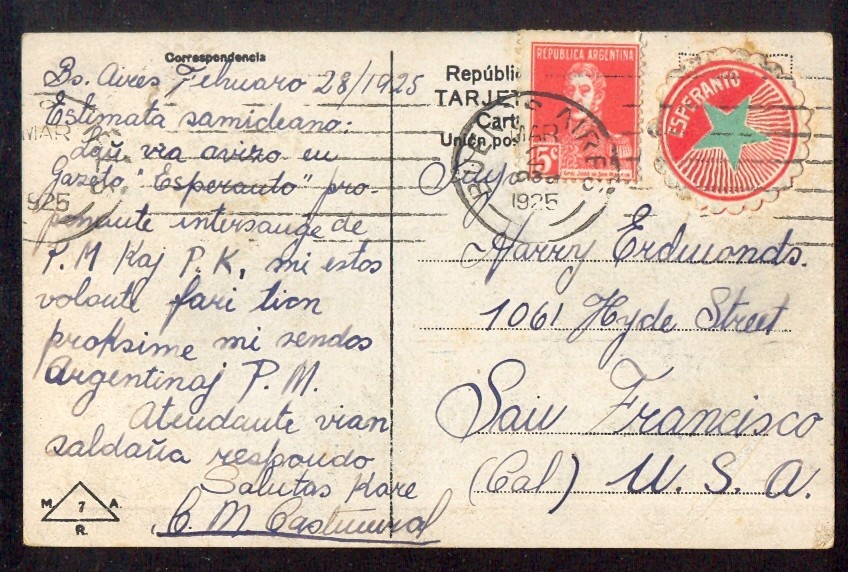 Correspondencia
Bs. Aires Februaro 28/1925
Estimata samideano:
Laŭ via avizo en
Gazeto "Esperanto" pro-
ponante intersange de
P.M Kaj P.K, mi estos
volonte fari tion
proksime mi sendos
Argentinaj P.M.
Atendante vian
respondo
Salutas Kare
C. M
M. 7 A.
R.
Repúbli
TARJE
Cart
Unión pos
REPUBLICA ARGENTINA
5c
BUENOS AIRES
MAR
1925
MAR
925
ESPERANTO
Harry Erdmonds.
1061 Hyde Street
San Francisco
(Cal) U. S. A.